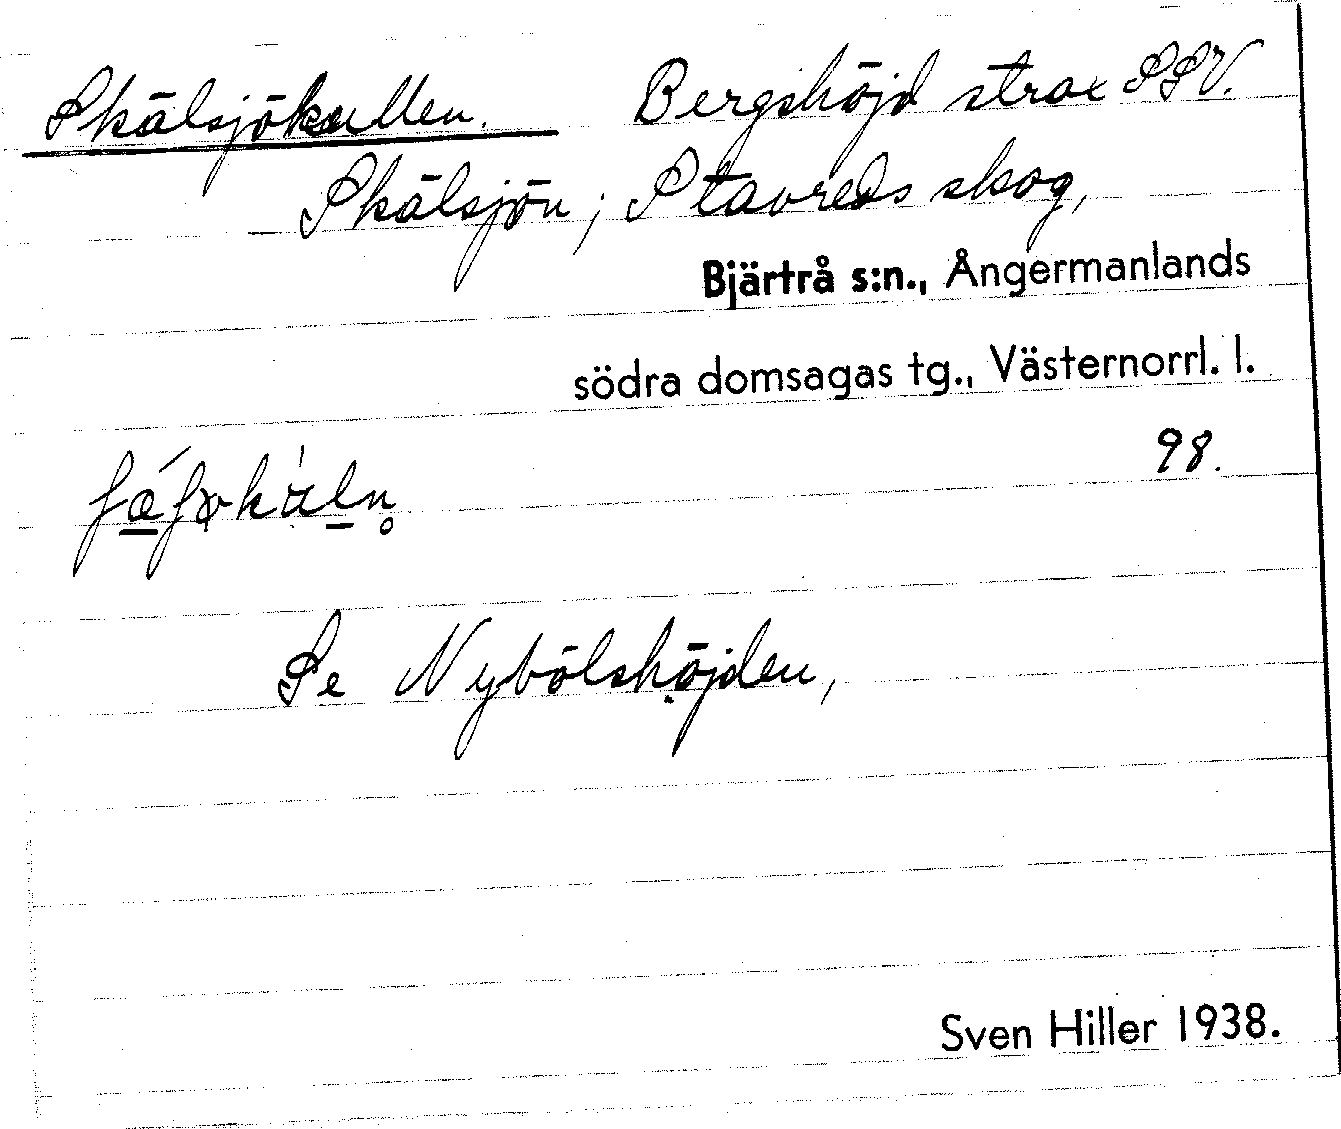 Skälsjökullen. Bergshöjd strax SSV.
Skälsjön; Stavreds skog,
Bjärtrå s:n., Ångermanlands
södra domsagas tg., Västernorrl. l.
98.
Se Nybölshöjden,
Sven Hiller 1938.